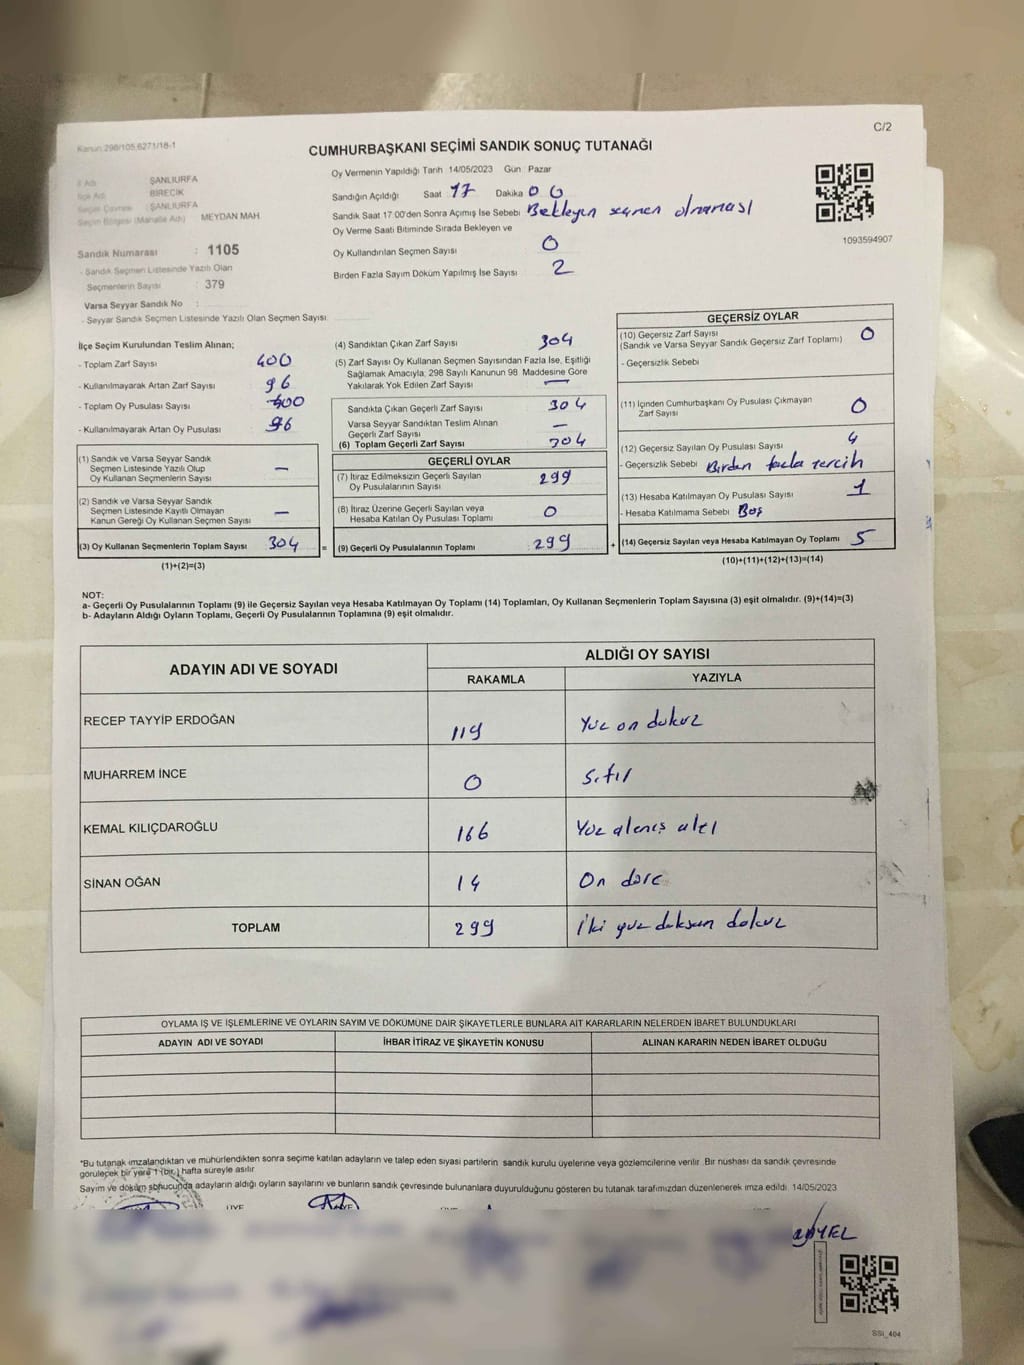 C/2
Kanun 298/105,6271/18-1
CUMHURBAŞKANI SEÇİMİ SANDIK SONUÇ TUTANAĞI
İl Adı : ŞANLIURFA
İlçe Adı : BİRECİK
Seçim Çevresi : ŞANLIURFA
Seçim Bölgesi (Mahalle Adı) MEYDAN MAH.
Sandık Numarası : 1105
- Sandık Seçmen Listesinde Yazılı Olan
Seçmenlerin Sayısı : 379
Varsa Seyyar Sandık No :
- Seyyar Sandık Seçmen Listesinde Yazılı Olan Seçmen Sayısı:
Oy Vermenin Yapıldığı Tarih 14/05/2023 Gün Pazar
Sandığın Açıldığı Saat 17 Dakika 00
Sandık Saat 17:00'den Sonra Açımış İse Sebebi Bekleyen seçmen olmaması
Oy Verme Saati Bitiminde Sırada Bekleyen ve
Oy Kullandırılan Seçmen Sayısı 0
Birden Fazla Sayım Döküm Yapılmış İse Sayısı 2
1093594907
İlçe Seçim Kurulundan Teslim Alınan;
- Toplam Zarf Sayısı 400
- Kullanılmayarak Artan Zarf Sayısı 96
- Toplam Oy Pusulası Sayısı 400
- Kullanılmayarak Artan Oy Pusulası 96
(1) Sandık ve Varsa Seyyar Sandık
Seçmen Listesinde Yazılı Olup
Oy Kullanan Seçmenlerin Sayısı —
(2) Sandık ve Varsa Seyyar Sandık
Listesinde Kayıtlı Olmayan
Kanun Gereği Oy Kullanan Seçmen Sayısı —
(3) Oy Kullanan Seçmenlerin Toplam Sayısı 304 =
(1)+(2)=(3)
(4) Sandıktan Çıkan Zarf Sayısı 304
(5) Zarf Sayısı Oy Kullanan Seçmen Sayısından Fazla İse, Eşitliği
Sağlamak Amacıyla, 298 Sayılı Kanunun 98. Maddesine Göre
Yakılarak Yok Edilen Zarf Sayısı —
Sandıkta Çıkan Geçerli Zarf Sayısı 304
Varsa Seyyar Sandıktan Teslim Alınan
Geçerli Zarf Sayısı —
(6) Toplam Geçerli Zarf Sayısı 304
GEÇERLİ OYLAR
(7) İtiraz Edilmeksizin Geçerli Sayılan
Oy Pusulalarının Sayısı 299
(8) İtiraz Üzerine Geçerli Sayılan veya
Hesaba Katılan Oy Pusulası Toplamı 0
(9) Geçerli Oy Pusulalarının Toplamı 299 +
GEÇERSİZ OYLAR
(10) Geçersiz Zarf Sayısı 0
(Sandık ve Varsa Seyyar Sandık Geçersiz Zarf Toplamı)
- Geçersizlik Sebebi
(11) İçinden Cumhurbaşkanı Oy Pusulası Çıkmayan
Zarf Sayısı 0
(12) Geçersiz Sayılan Oy Pusulası Sayısı 4
- Geçersizlik Sebebi Birden fazla tercih
(13) Hesaba Katılmayan Oy Pusulası Sayısı 1
- Hesaba Katılmama Sebebi Boş
(14) Geçersiz Sayılan veya Hesaba Katılmayan Oy Toplamı 5
(10)+(11)+(12)+(13)=(14)
NOT:
a- Geçerli Oy Pusulalarının Toplamı (9) ile Geçersiz Sayılan veya Hesaba Katılmayan Oy Toplamı (14) Toplamları, Oy Kullanan Seçmenlerin Toplam Sayısına (3) eşit olmalıdır. (9)+(14)=(3)
b- Adayların Aldığı Oyların Toplamı, Geçerli Oy Pusulalarının Toplamına (9) eşit olmalıdır.
ADAYIN ADI VE SOYADI ALDIĞI OY SAYISI
RAKAMLA YAZIYLA
RECEP TAYYİP ERDOĞAN 119 Yüz on dokuz
MUHARREM İNCE 0 Sıfır
KEMAL KILIÇDAROĞLU 166 Yüz altmış altı
SİNAN OĞAN 14 On dört
TOPLAM 299 İki yüz doksan dokuz
OYLAMA İŞ VE İŞLEMLERİNE VE OYLARIN SAYIM VE DÖKÜMÜNE DAİR ŞİKAYETLERLE BUNLARA AİT KARARLARIN NELERDEN İBARET BULUNDUKLARI
ADAYIN ADI VE SOYADI İHBAR İTİRAZ VE ŞİKAYETİN KONUSU ALINAN KARARIN NEDEN İBARET OLDUĞU
*Bu tutanak imzalandıktan ve mühürlendikten sonra seçime katılan adayların ve talep eden siyasi partilerin sandık kurulu üyelerine veya gözlemcilerine verilir. Bir nüshası da sandık çevresinde
görülecek bir yere 1 (bir) hafta süreyle asılır.
Sayım ve döküm sonucunda adayların aldığı oyların sayılarını ve bunların sandık çevresinde bulunanlara duyurulduğunu gösteren bu tutanak tarafımızdan düzenlenerek imza edildi. 14/05/2023
SSİ_404